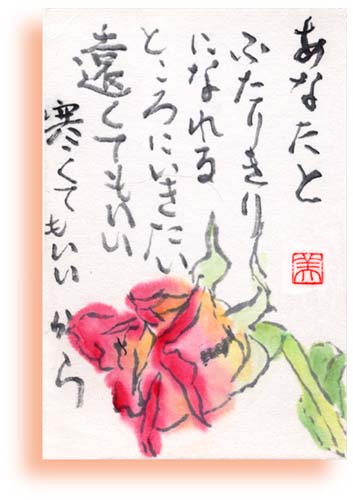 あなたと
ふたりきり
になれる
ところにいきたい
遠くてもいい
寒くてもいい から
美